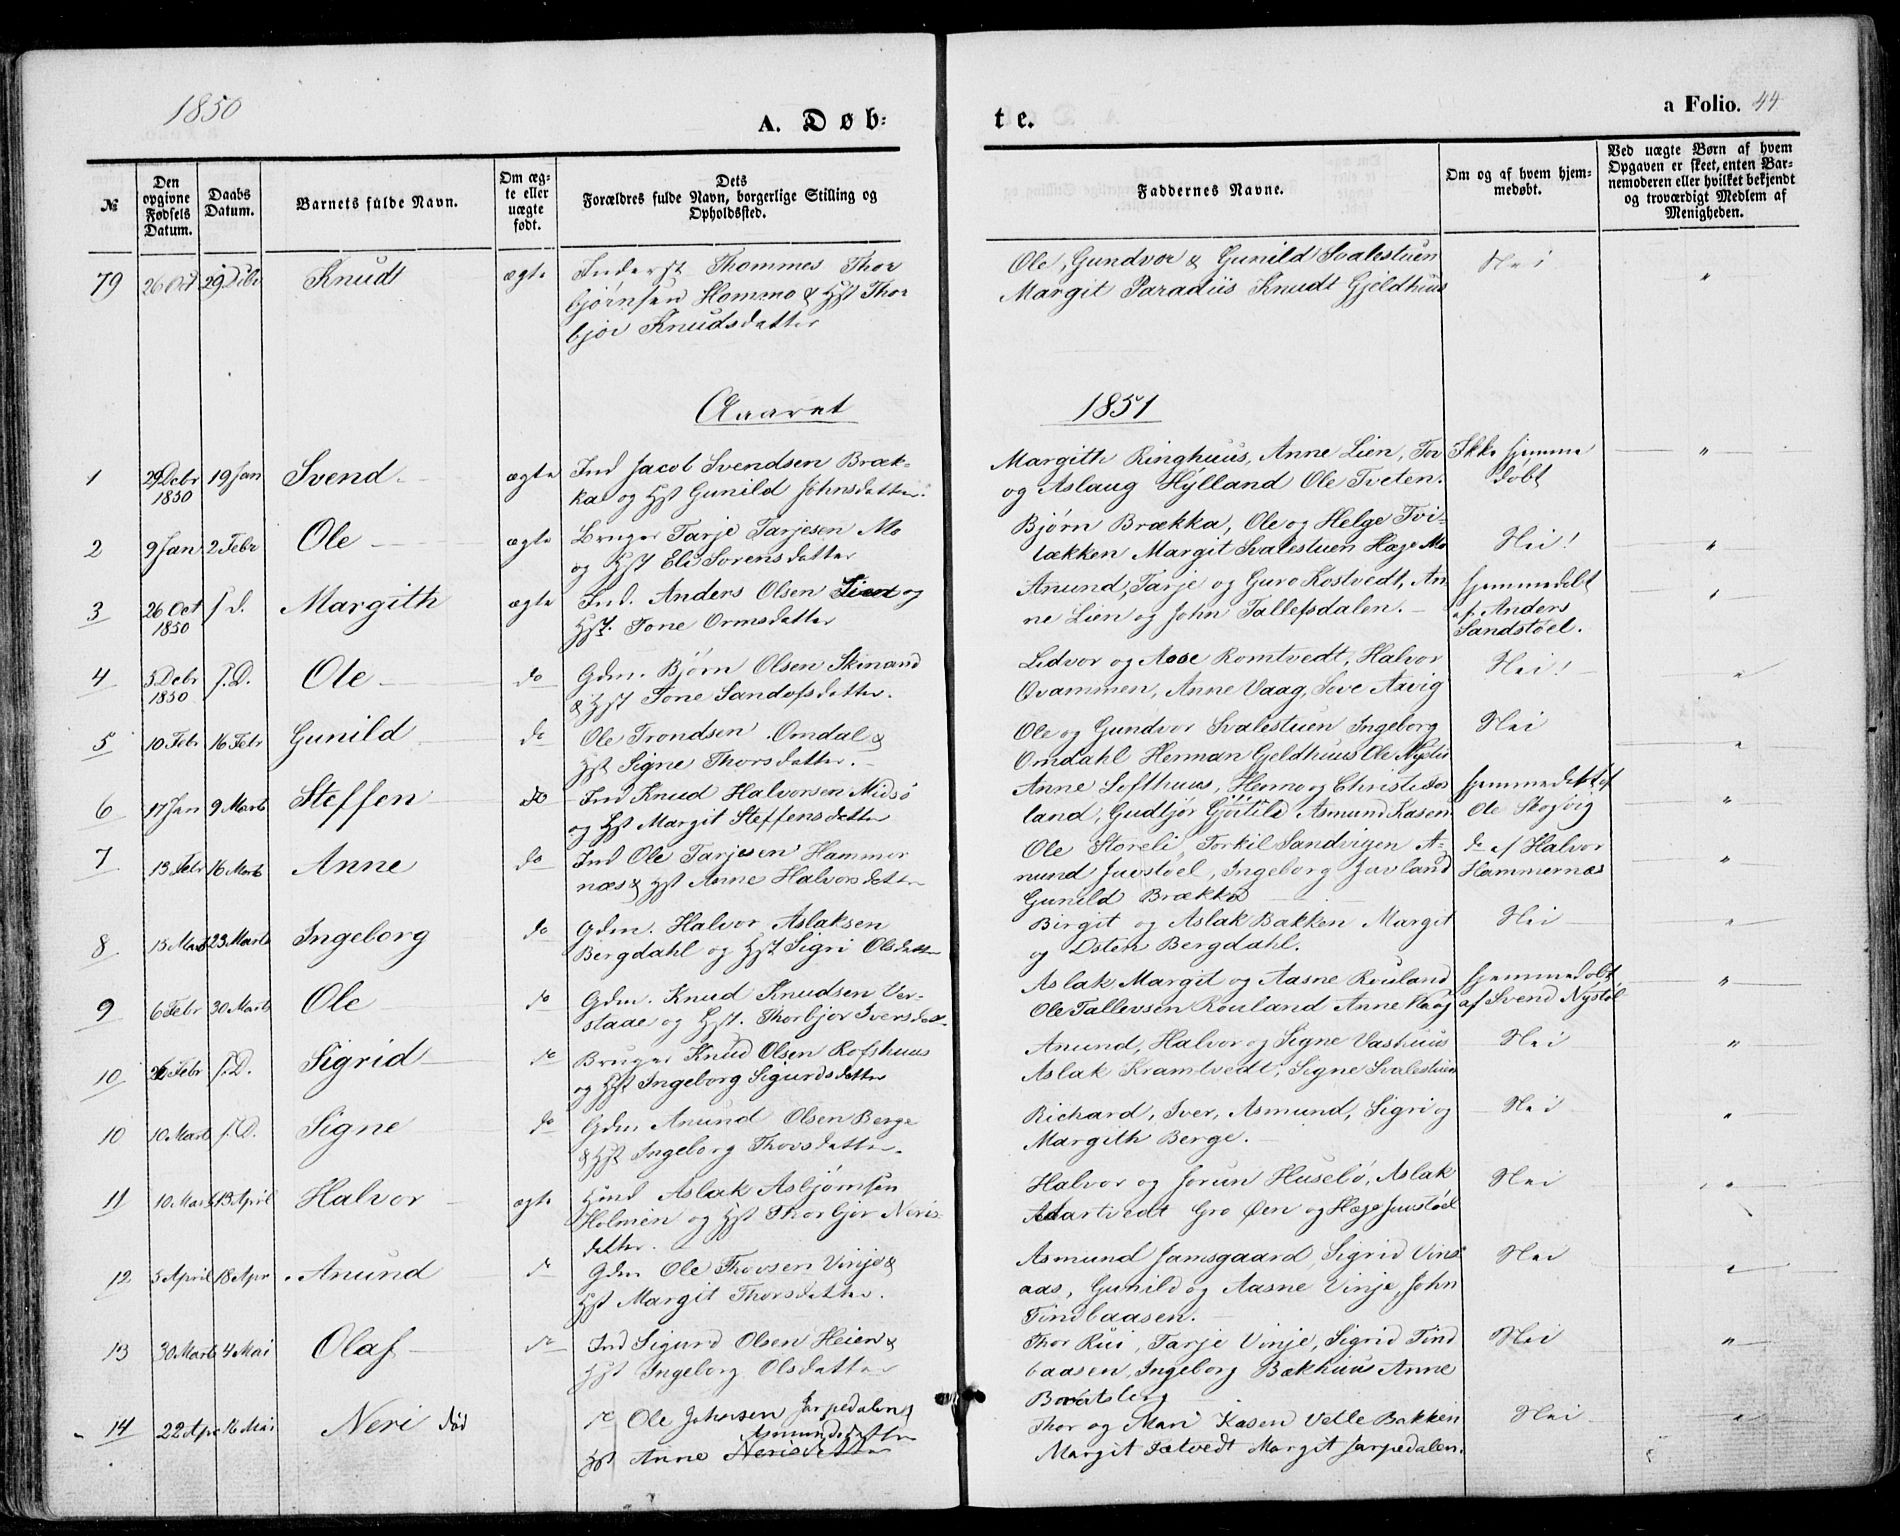 1850
A. Døb-
te.
a Folio. 44
№
Den opgivne Fødsels Datum.
Daabs Datum.
Barnets fulde Navn.
Om ægte eller uægte født.
Dets Forældres fulde Navn, borgerlige Stilling og Opholdssted.
Faddernes Navne.
Om og af hvem hjemmedøbt.
Ved uægte Børn af hvem Opgaven er skeet, enten Barnemoderen eller hvilket bekjendt og troværdigt Medlem af Menigheden.
79 26 Oct 29 Debr Knudt ægte Inderst Thommes Thor
bjørnsen Hommo & Hst Thor
bjør Knudsdatter
Ole, Gundvor & Gunild Svalestuen Nei "
Margit Paradiis Knudt Gjeldhuus
Aaret 1851
1 29 Debr 1850 19 Jan Svend ægte Ind Jacob Svendsen Bræk-
ka og Hst Gunild Johnsdatter.
Margith Ringhuus, Anne Lien, Tov Ikke hjemme "
og Aslaug Hylland Ole Tveten. døbt
2 9 Jan 2 Febr Ole ægte Bruger Tarje Tarjesen Mo
og Hst Eli Sorensdatter
Bjørn Brækka, Ole og Helge Tvi-
tækken Margit Svalestuen Hæge Mo Nei! "
3 26 Oct 1850 f d. Margith ægte Ind. Anders Olsen Lien og
Hst. Tone Ormsdatter
Anund, Tarje og Guro Kostvedt, An- hjemmedøbt "
ne Lien og John Tallefsdalen. af Anders
Sandstøel.
4 5 Debr 1850 f. D. Ole do Gdm. Bjørn Olsen Skinand
& Hst Tone Sandofsdatter.
Lidvor og Aase Romtvedt, Halvor Nei! "
Qvammen, Anne Vaag, Tove Aavig
5 10 Febr 16 Febr Gunild do Ole Trondsen Omdal &
Hst Signe Thorsdatter.
Ole og Gundvor Svalestuen Ingeborg Nei "
Omdahl Herman Gjeldhuus Ole Nystøl
6 17 Jan 9 Marts Steffen do Ind Knud Halvorsen Midsø
og Hst Margit Steffensdatter
Anne Lofthuus, Hermo og Christi Jos hjemmedøbt af "
land, Gudbjør Asmund Kasen Ole Skogvig
7 13 Febr 16 Marts Anne do Ind Ole Tarjesen Hammer
næs & Hst Anne Halvorsdatter
Ole Storeli Torkil Sandvigen A- do af Halvor "
nund Juvstøel, Ingeborg Jorland Hammernæs
Gunild Brækka
8 15 Marts 23 Marts Ingeborg do Gdm. Halvor Aslaksen
Bergdahl og Hst Sigri Olsdatter
Birgit og Aslak Bakken Margit Nei "
og Østen Bergdahl.
9 6 Febr 30 Marts Ole do Gdm. Knud Knudsen Ver-
staae og Hst. Thorbjør Iversdatt.
Aslak Margit og Aasne Rouland hjemmedøbt "
Ole Tallevsen Rouland Anne Vaag af Svend Nystøl
10 26 Febr f. D. Sigrid do Bruger Knud Olsen Rofshuus
og Hst Ingeborg Sigurdsdatter
Anund, Halvor og Signe Vashuus Nei "
Aslak Kramtvedt, Signe Svalestuen
10 10 Marts f. D. Signe do Gdm Anund Olsen Berge
& Hst Ingeborg Thorsdatter.
Richard, Iver, Asmund, Sigri og Nei "
Margith Berge.
11 10 Marts 13 April Halvor ægte Huusmd Aslak Asbjørnsen
Holmen og Hst Thorbjør Neris-
datter.
Halvor og Jorun Husebø, Aslak Nei "
Aartvedt Gro Øen og Hæge Juvstøel
12 5 April 18 Apr Anund do Gdm Ole Thovsen Vinje &
Hst Margit Thorsdatter.
Asmund Jamsgaard, Sigrid Vins Nei "
aas, Gunild og Aasne Vinje, John
Tindbaasen.
13 30 Marts 4 Mai Olaf do Ind Sigurd Olsen Heien &
Hst Ingeborg Olsdatter
Thor Rui, Tarje Vinje, Sigrid Tind Nei "
baasen, Ingeborg Bækhuus Anne
14 22 Apr 16 Mai Neri død do Ole Johnsen Jarpedalen &
Asmundsdatter
Hst Anne Nerisdatter
Thor og Mari Kasen Vetle Bakken Nei "
Margit Sætvedt Margit Jarpedalen.